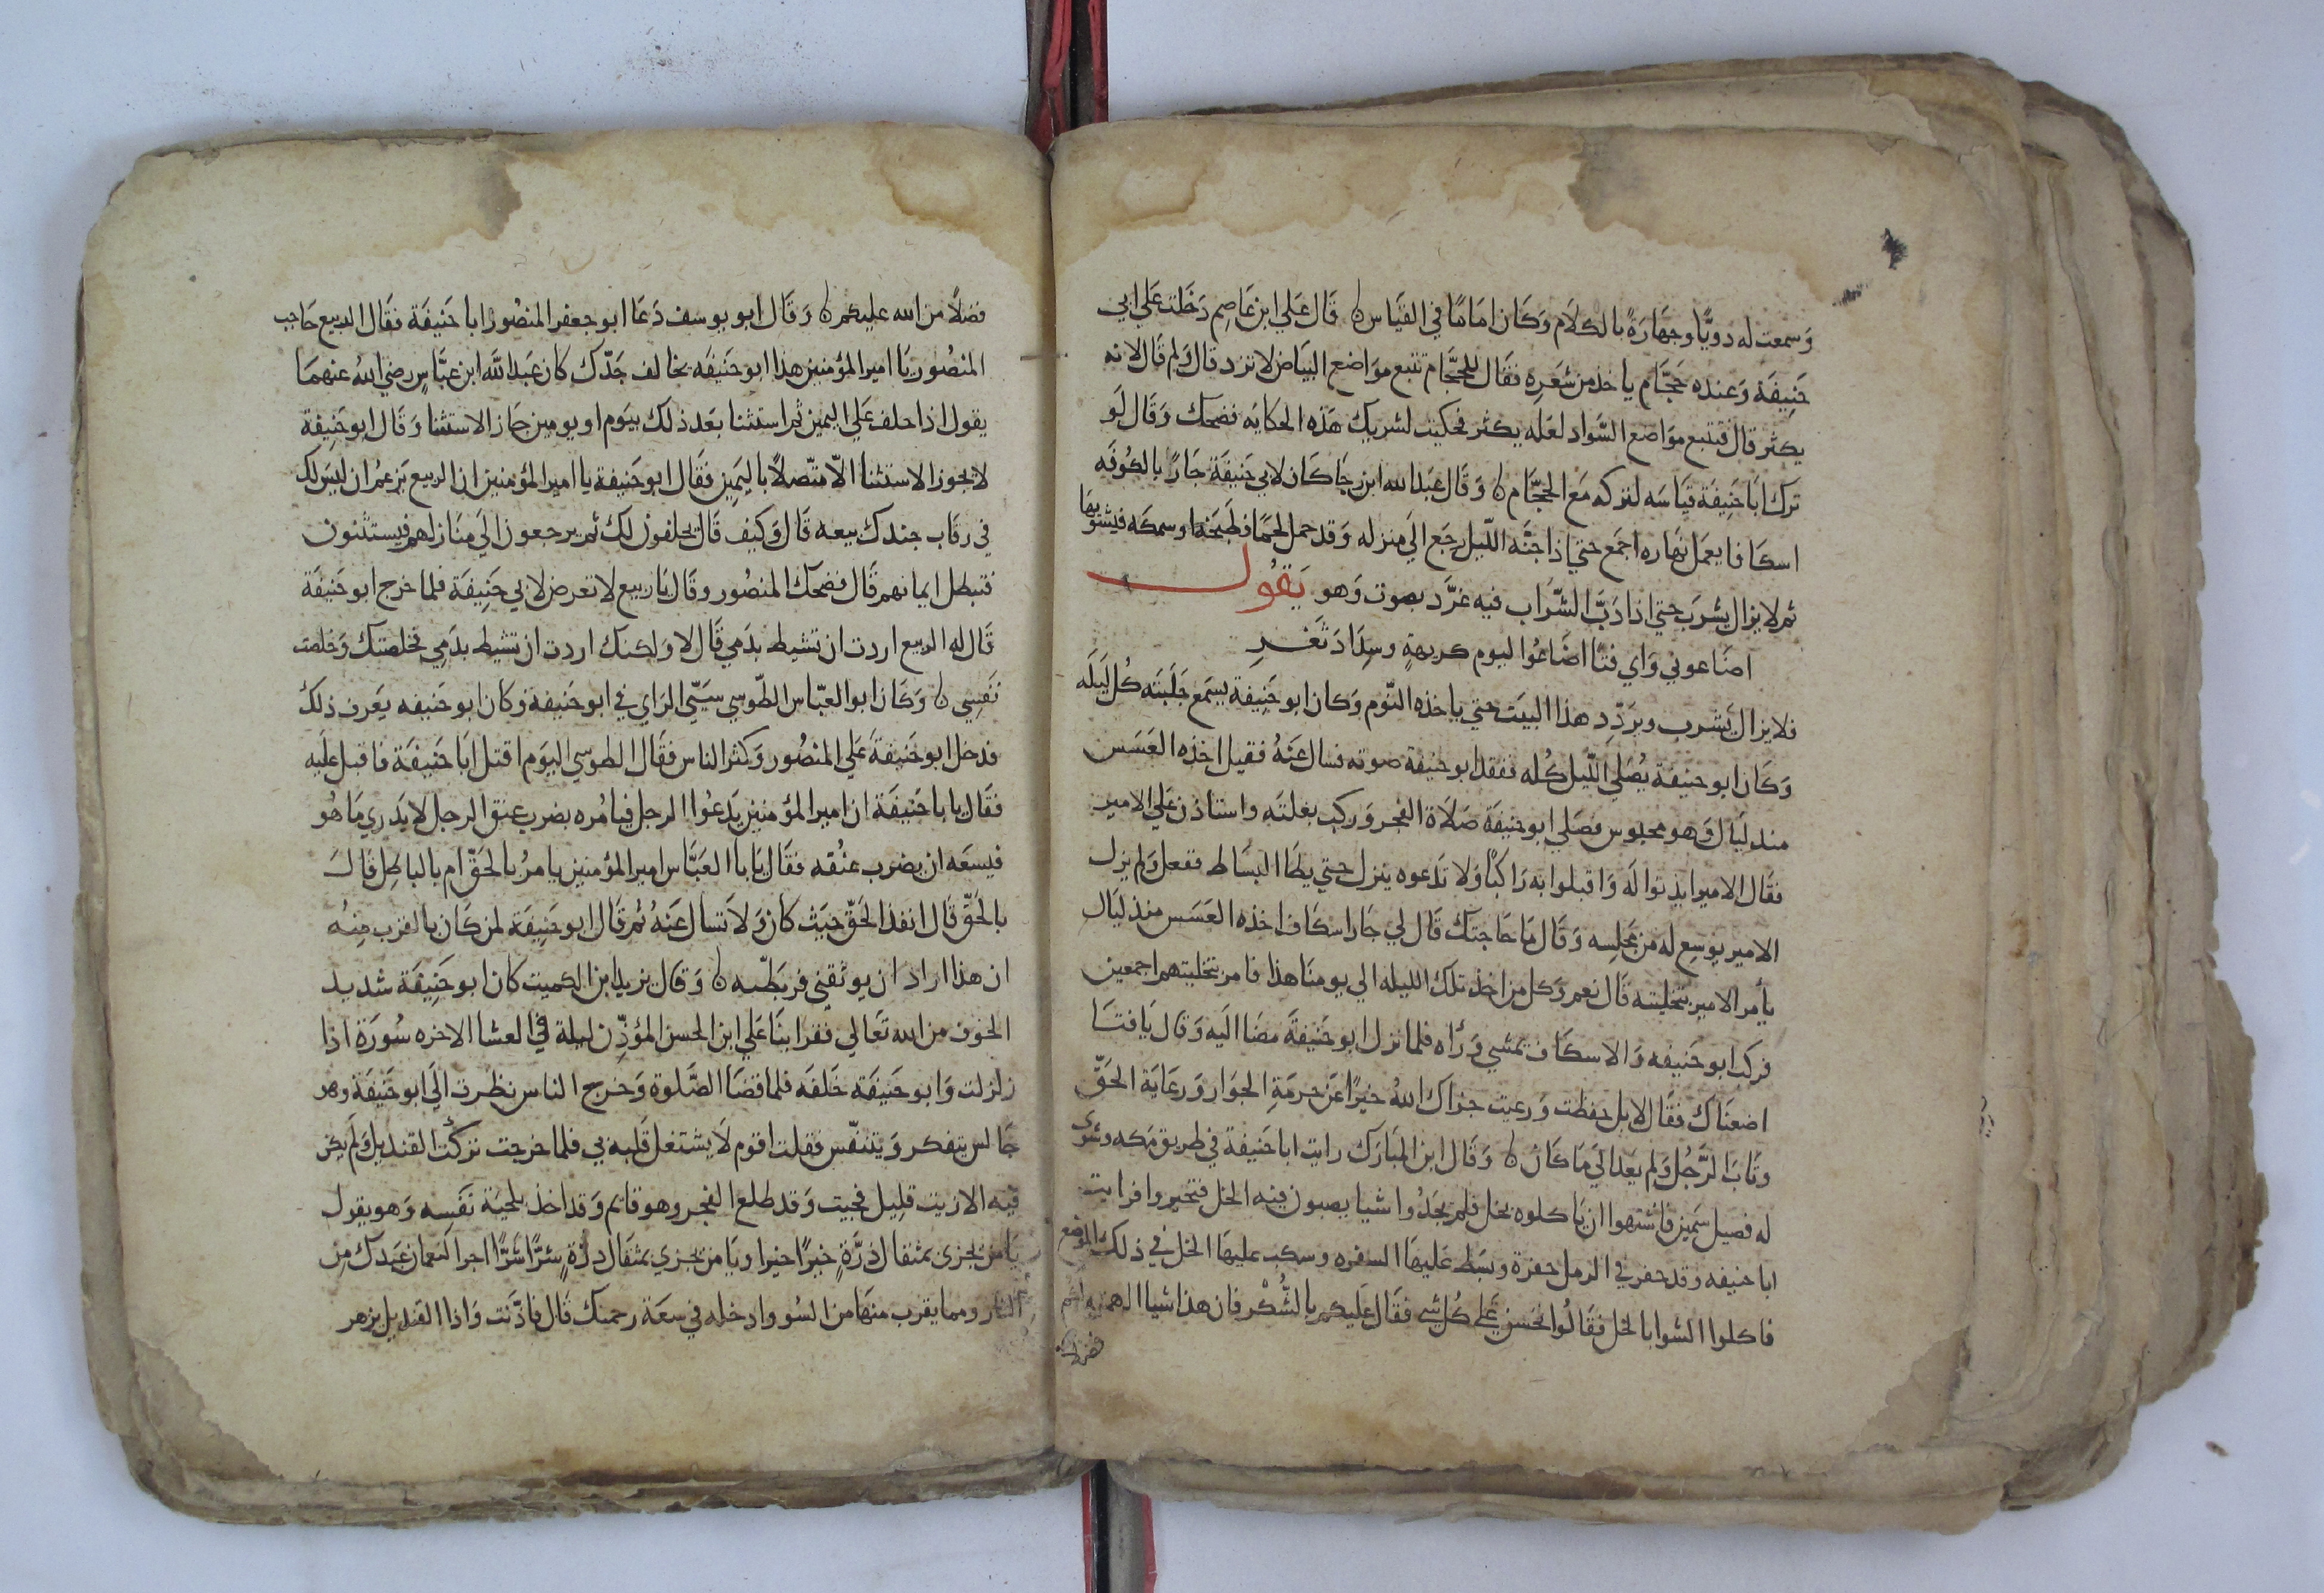 وَسمعت له دويًّا وجهَارَةً بالكلَام وَكَان امَامًا في القيَاس ه قَال عَلي ابن عَاصِم دَخَلت عَلي ابي
حَنِيفَة وَعنده حَجَّام ياخذ من شَعَرِه فقَال للحجَّام تتبع موَاضع البيَاض لا تزد قال وَلم قَال لانه
يكثر قال فتتبع موَاضع السَّواد لعَله يكثر فحكيت لشريك هَذه الحكايَه فضحك وَقَال لَو
ترك ابَا حَنِيفَة قيَاسَه لتركه مَع الحجَّام ه وَقَال عَبد الله ابن رجَا كَان لابي حَنِيفَة جَارً بالكُوفَه
اسكَافا يعمَل نهَاره اجمَع حتي اذا جنَّه اللّيل رجَع الَي منزله وَقد حمل لحمًا فطبَخَه او سمكَه فيشتويهَا
ثم لا يزال يشرَب حتي اذا دَبَّ الشّرَاب فيه غرَّد بصوت وَهو يَقُول
اضَاعوني وَاي فتًا اضَاعُوا ليوم كريهةٍ وسِدَاد ثَغرِ
فلا يزال يَشرب ويردِّد هذا البيَت حتي ياخذه النّوم وَكان ابو حَنِيفة يسمَع جَلَبَته كُل ليَلَه
وَكَان ابو حنيفَة يُصَلي اللّيل كُله ففقد ابو حنيفة صوته فسال عَنهُ فقيل اخذه العَسَس
منذ ليَال وَهو محبوس فصَلي ابو حنيفَة صَلاَة الفجر وَركب بغلتَه واستاذن عَلي الامير
فقَال الامير ايذنوا لَه وَاقبلوا به رَاكبًا وَلا تدَعوه ينزل حتي يطَا البسَاط ففعل وَلم يزل
الامير يوسِع له من مجَلِسِه وَقَال مَا حَاجتك قَال لي جَار اسكَاف اخذه العَسَس منذ ليَال
يأمر الامير بتخليته قَال نعم وَكل من اخذ تلك الليله الي يومنَا هذا فامر بتخليتهم اجمعين
فركب ابو حَنيفه وَالاسكَاف يمشي وَرَاه فلما نزل ابو حَنيفَة مضَا اليَه وَقال يَا فتَا
اضعنَاك فقَال لا بل حفظت وَرعيت جزاك اللهُ خيرًا عَن حرمَةِ الجوَار وَرعَايَة الحَقّ
وتَابَ الرَّجُل وَلم يعد الَي مَا كَان ه وَقَال ابن المبَارَك رايت ابا حَنيفة في طريق مَكه وشوي
له فصيل سَمين فاشتهوا ان يَاكلوه بخل فلم يجَدُوا شيا يصبون فيه الخل فتحيروا فرايت
ابا حنيفه وقد حفر في الرمل حفرة وبَسَط عَليهَا السفره وسكب عليهَا الخل في ذلك الموضع
فاكلوا الشوا بالخل فقَالُوا تحسن عَلي كُل شي فقَال عَليكم بالشُّكْر فان هذا شيا الهمنيه لكم
فضلا
فضلاً من الله عليكم ه وَقَال ابو يوسف دَعَا ابو جعفر المنصُور ابا حَنيفَة فقَال الربيع حَاجب
المنصُور يَا امير المؤمنين هذا ابو حَنيفَه يخالف جَدّك كان عَبد الله ابن عبَّاسٍ رضي اللهُ عنهمَا
يقول اذا حلف عَلي اليمين ثم استثنا بعَد ذلك بيَوم او يومين جَاز الاستثنا وَقَال ابو حَنِيفَة
لا يجوز الاستثنا الّا متّصلاً باليَمِين فقَال ابو حَنيفة يا امير المؤمنين ان الربيع يَزعمُ ان ليَس لك
في رقَاب جندك بيعه قَال وَكيف قَال يحلفون لك ثم يرجعون الَي منَازلهم فيستثنون
فتبطل ايمانهم قَال فضحك المنصُور وقَال يَا ربيع لا تعرض لابي حَنِيفَة فلما خرج ابو حَنيفَة
قَال له الربيع اردت ان تشيط بدَمي قَال لا وَلكنك اردت ان تشيط بدَمِي فخلصتك وَخلصت
نَفسِي ه وَكَان ابو العبّاس الطّوسي سيَيّ الرَاي في ابو حَنيفة وَكان ابو حَنيفه يَعَرف ذلك
فدخل ابو حَنيفَة عَلي المنصُور وَكثر الناس فقَال الطوسي اليوَم اقتل ابَا حَنيفَة فاقبل عليَه
فقَال يابا حَنيفَة ان امير المؤمنين يَدعُوا الرجل فيامُره بضرب عنق الرجل لا يَدَري مَا هُو
فيسعَه ان يضرب عنُقه فقَال يَابا العَبَّاس امير المؤمنين يامرُ بالحَقّ ام بالباطِل قَالَ
بالحَقّ قَال انفذ الحَقّ حيَث كان وَلاَ تسال عَنهُ ثم قَال ابو حَنِيفَة لمن كَان بالقرب مِنهُ
ان هذا اراد ان يوثقني فربَطته ه وَقال يزيد ابن الكميت كان ابو حَنِيفَة شديد
الخوف من الله تَعَالي فقرا بنَا عَلي ابن الحسن المؤذِّن ليلة في العشا الاخره سُورَة اذا
زلزلت وَابو حَنيفَة خَلفَه فلما قضَا الصَّلوة وَخرج الناس نظرت الَي ابو حَنيفَة وهو
جَالس يتفكر وَيتنفّس فقلت اقوم لَا يشتغل قَلبه بي فلما خرجت تركتُ القنديل وَلم يكن
فيه الا زيت قلِيل فجيت وَقد طلع الفجر وهو قايم وَقد اخذ بلحيَة نَفسِه وَهو يقول
يَا من يجزي بمثقال ذرَّةٍ خيرًا خيرا ويَا من يجزي بمثقَال ذرَّةٍ شرًّا شرًّا اجر النعمان عَبدك مِن
النار ومما يقرب منهَا من السُو وادخله في سعَة رحمتك قَال فاذّنت وَاذا القنديل يزهر